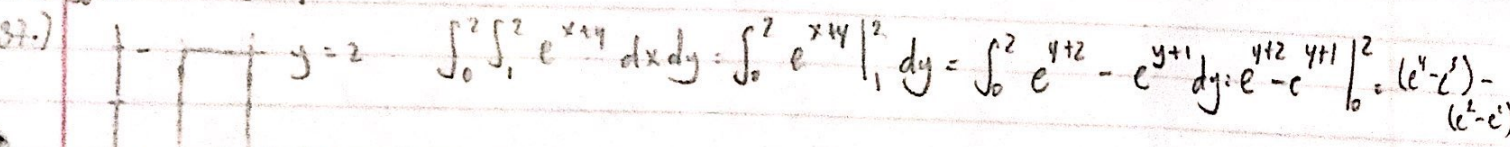 37.) y = 2 ∫₀² ∫₁² e^{x+y} dx dy = ∫₀² e^{x+y} |₁² dy = ∫₀² e^{y+2} - e^{y+1} dy = e^{y+2} - e^{y+1} |₀² = (e⁴ - e³) -
(e² - e¹)